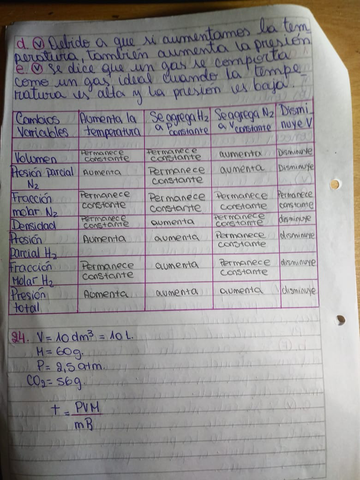 d. (V) Debido a que si aumentamos la tem
peratura, también aumenta la presión
e. (V) Se dice que un gas se comporta
como un gas ideal cuando la tempe-
ratura es alta y la presion es baja.
Cambios Variables | Aumenta la temperatura | Se agrega H2 a P constante | Se agrega N2 a V constante | Dismi nuye V
Volumen | Permanece constante | Permanece constante | aumenta | Disminuye
Presión Parcial N2 | aumenta | Permanece constante | aumenta | Disminuye
Fracción molar N2 | Permanece constante | Permanece constante | Permanece constante | Permanece constante
Densidad | Permanece constante | aumenta | Permanece constante | disminuye
Presión Parcial H2 | Aumenta | aumenta | Permanece constante | disminuye
Fracción Molar H2 | Permanece constante | aumenta | Permanece constante | disminuye
Presión total | Aumenta | aumenta | aumenta | disminuye
24. V = 10 dm³ = 10 L.
M = 60g.
P = 2,5 atm.
CO2 = 56g.
t = PVM
mR